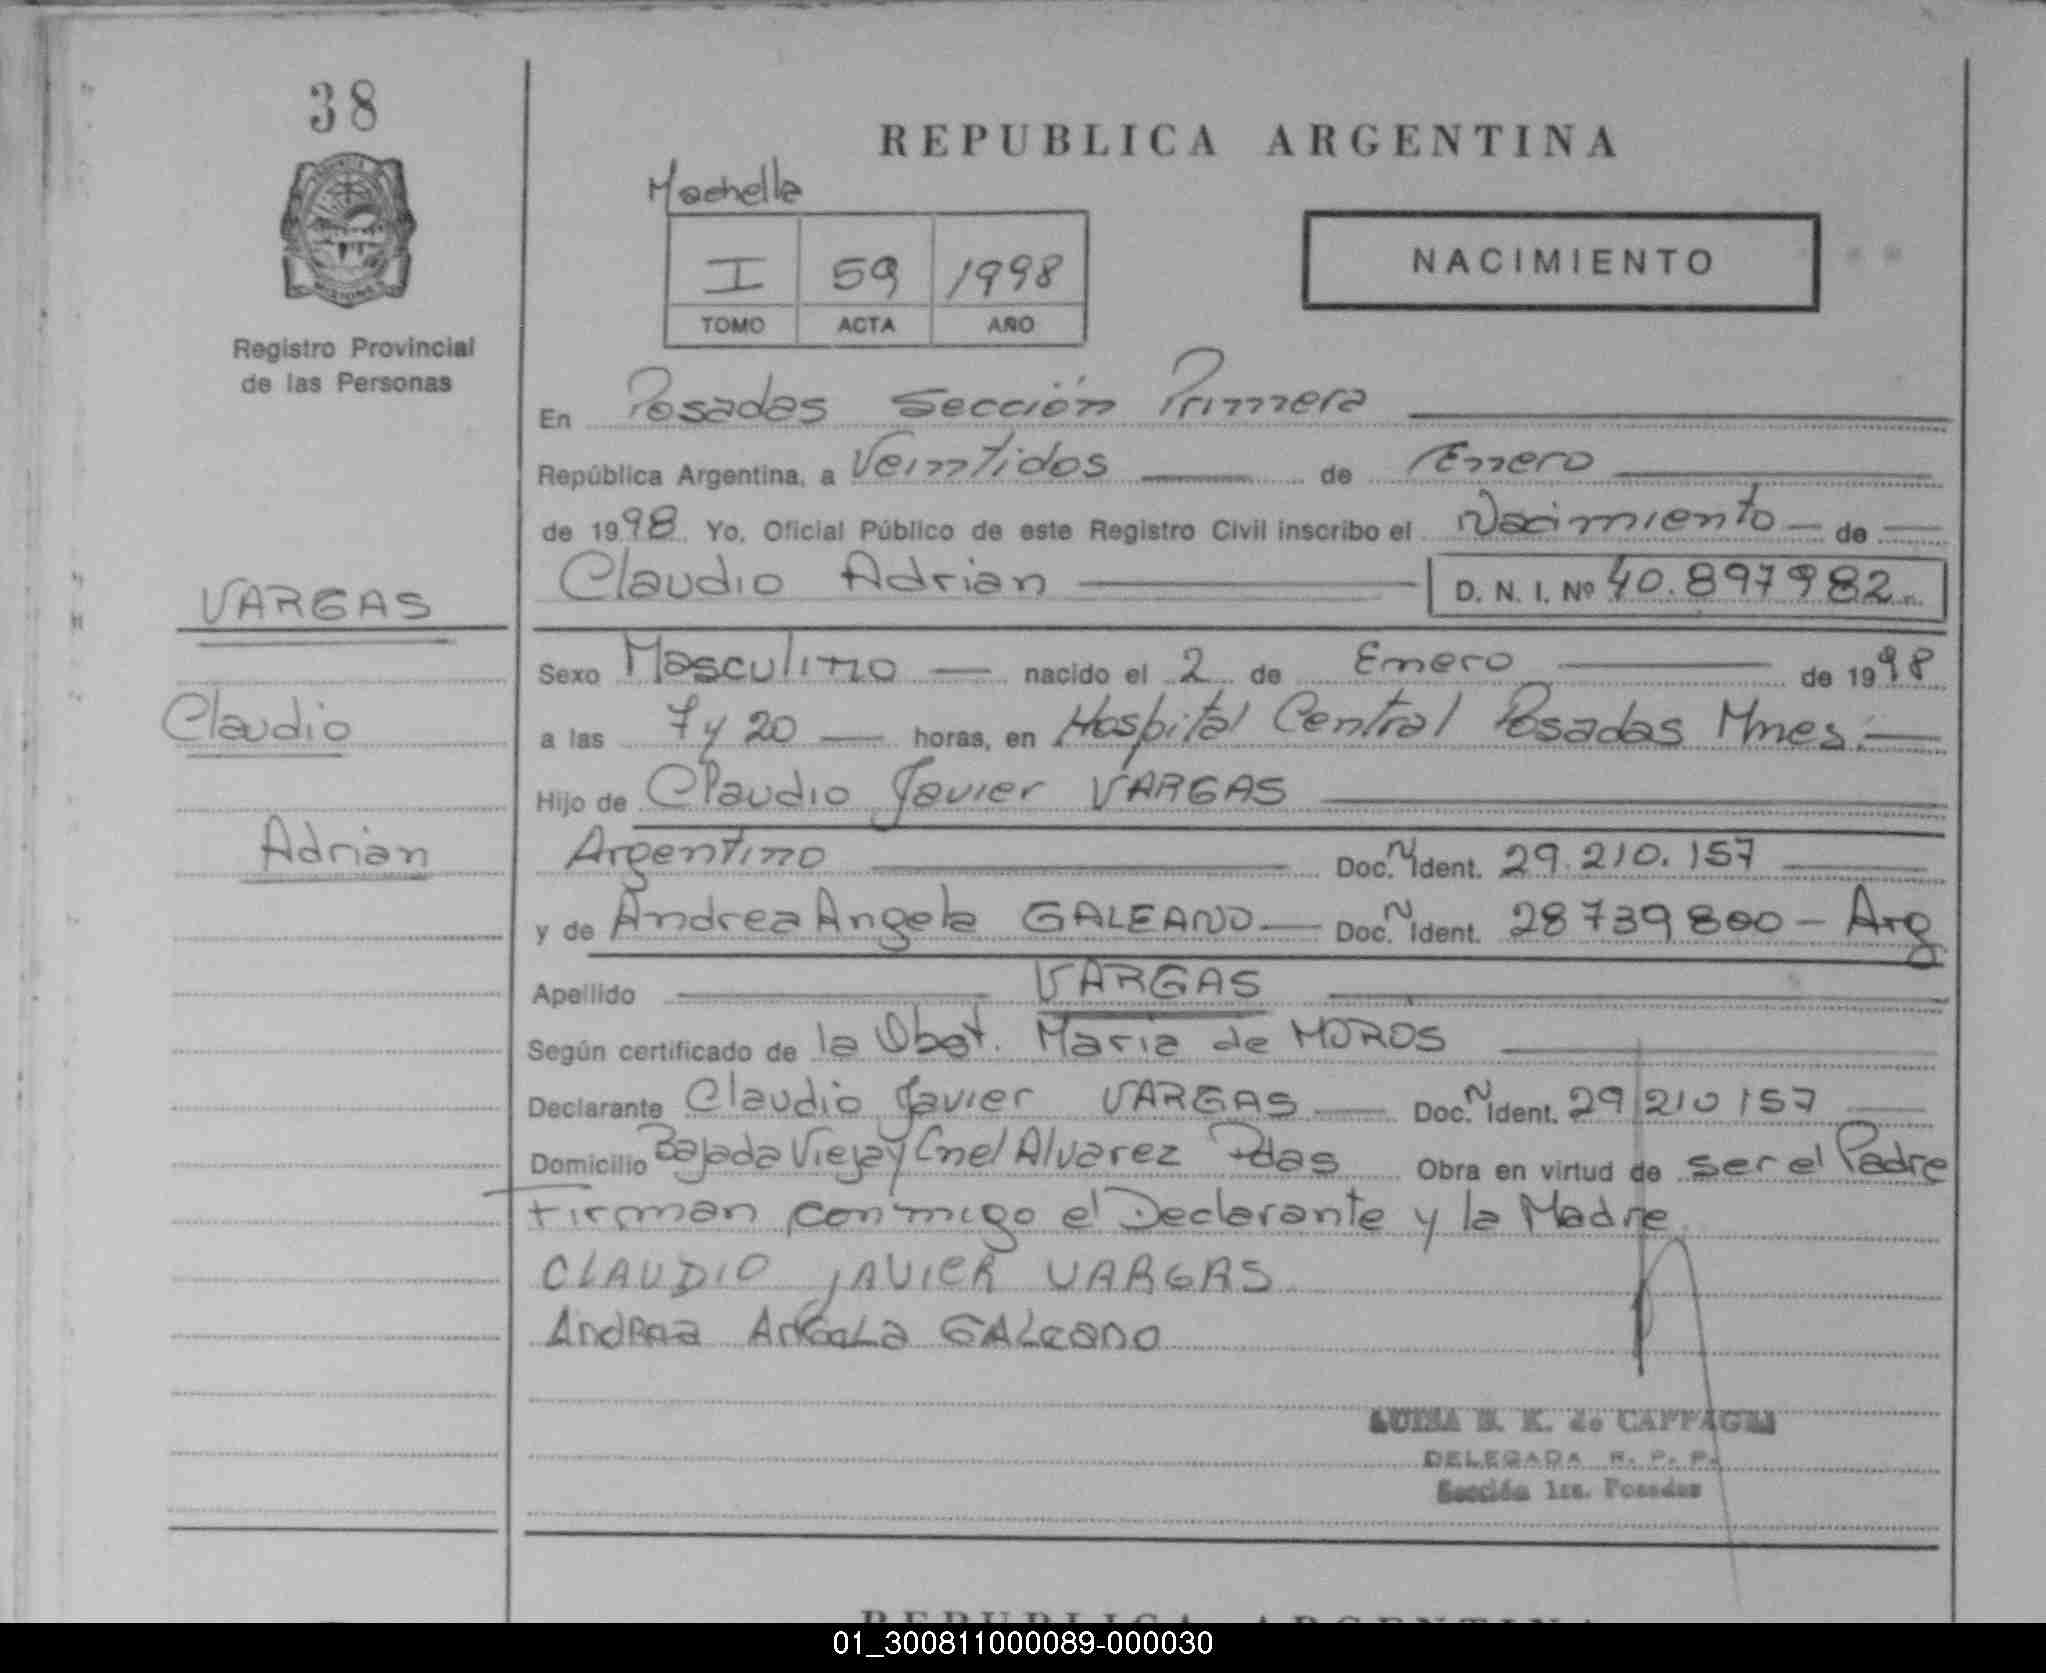 38
REPUBLICA ARGENTINA
Machella
I 59 1998
TOMO ACTA AÑO
NACIMIENTO
Registro Provincial
de las Personas
En Posadas Sección Primera
República Argentina, a Veintidos de Enero
de 1998. Yo, Oficial Público de este Registro Civil inscribo el Nacimiento de
VARGAS
Claudio Adrian D. N. I. Nº 40.897982
Sexo Masculino nacido el 2 de Enero de 1998
Claudio
a las 7 y 20 horas, en Hospital Central Posadas Mnes.
Hijo de Claudio Javier VARGAS
Adrian
Argentino Doc. N Ident. 29.210.157
y de Andrea Angela GALEANO Doc. N Ident. 28739800 - Arg
Apellido VARGAS
Según certificado de la Obst. Maria de MOROS
Declarante Claudio Javier VARGAS Doc. N Ident. 29210157
Domicilio Bajada Vieja y Cnel Alvarez Pdas Obra en virtud de ser el Padre
Firman conmigo el Declarante y la Madre
CLAUDIO JAVIER VARGAS
Andrea Angela GALeano
LUISA B. K. de
DELEGADA R. P. P.
Sección 1ra. Posadas
REPUBLICA ARGENTINA
01_300811000089-000030